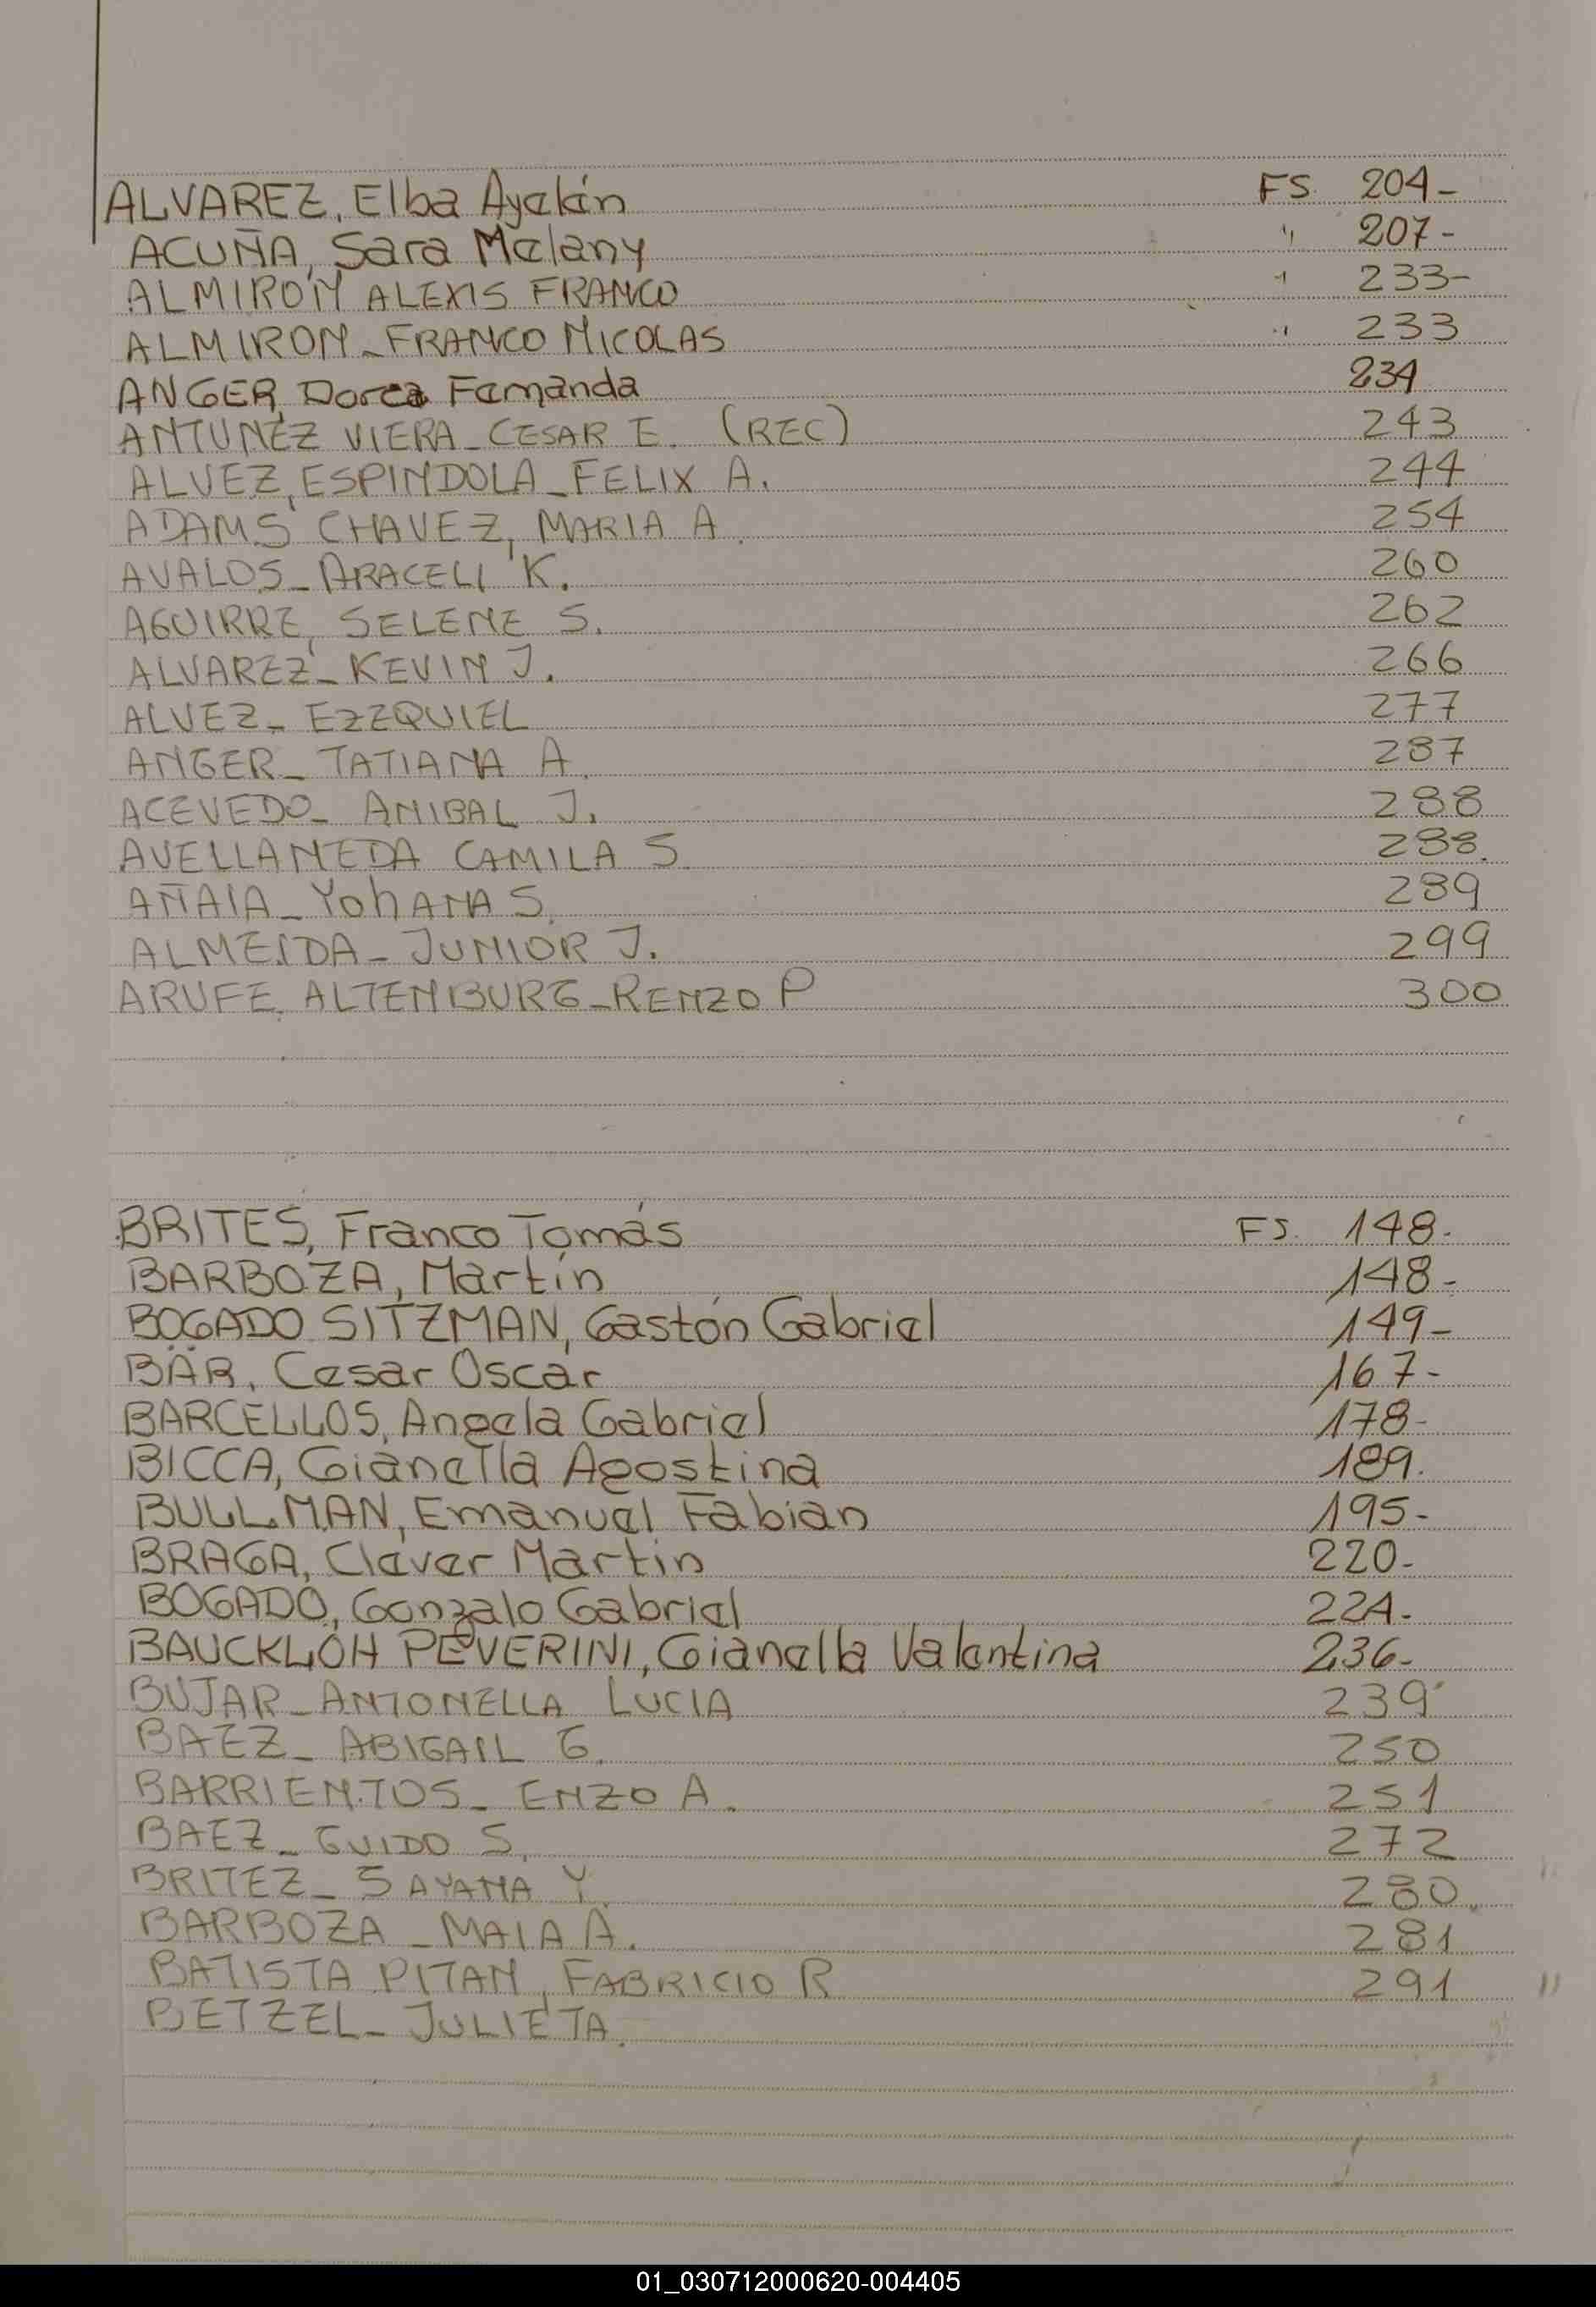 ALVAREZ, Elba Ayelén FS. 204-
ACUÑA, Sara Melany " 207-
ALMIRON ALEXIS FRANCO " 233-
ALMIRON_FRANCO NICOLAS " 233
ANGER, Dorca Fernanda 234
ANTUNEZ VIERA_CESAR E. (REC) 243
ALVEZ, ESPINDOLA_FELIX A. 244
ADAMS CHAVEZ, MARIA A. 254
AVALOS_ARACELI K. 260
AGUIRRE, SELENE S. 262
ALVAREZ_KEVIN J. 266
ALVEZ_EZEQUIEL 277
ANGER_TATIANA A. 287
ACEVEDO_ANIBAL J. 288
AVELLANEDA CAMILA S. 288.
AÑAIA_YohANA S. 289
ALMEIDA_JUNIOR J. 299
ARUFE ALTENBURG_RENZO P 300
BRITES, Franco Tomás FS. 148-
BARBOZA, Martín 148-
BOGADO SITZMAN, Gastón Gabriel 149-
BÄR, Cesar Oscar 167-
BARCELLOS, Angela Gabriel 178-
BICCA, Gianella Agostina 189.
BULLMAN, Emanuel Fabian 195-
BRAGA, Claver Martin 220-
BOGADO, Gonzalo Gabriel 221-
BAUCKLOH PEVERINI, Gianella Valentina 236-
BUJAR_ANTONELLA LUCIA 239
BAEZ_ABIGAIL G. 250
BARRIENTOS_ENZO A. 251
BAEZ_GUIDO S. 272
BRITEZ_SAYANA Y. 280.
BARBOZA_MAIA A. 281
BATISTA PITAN, FABRICIO R 291
BETZEL_JULIETA.
01_030712000620-004405